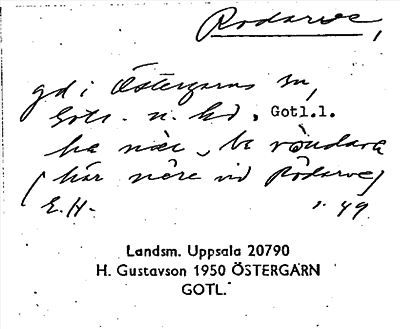 Rodarve,
gd i Östergarns sn,
Gotl. n. hd, Gotl.l.
ha nære,
(här nere vid Rodarve)
E.H. 49
Landsm. Uppsala 20790
H. Gustavson 1950 ÖSTERGARN
GOTL.